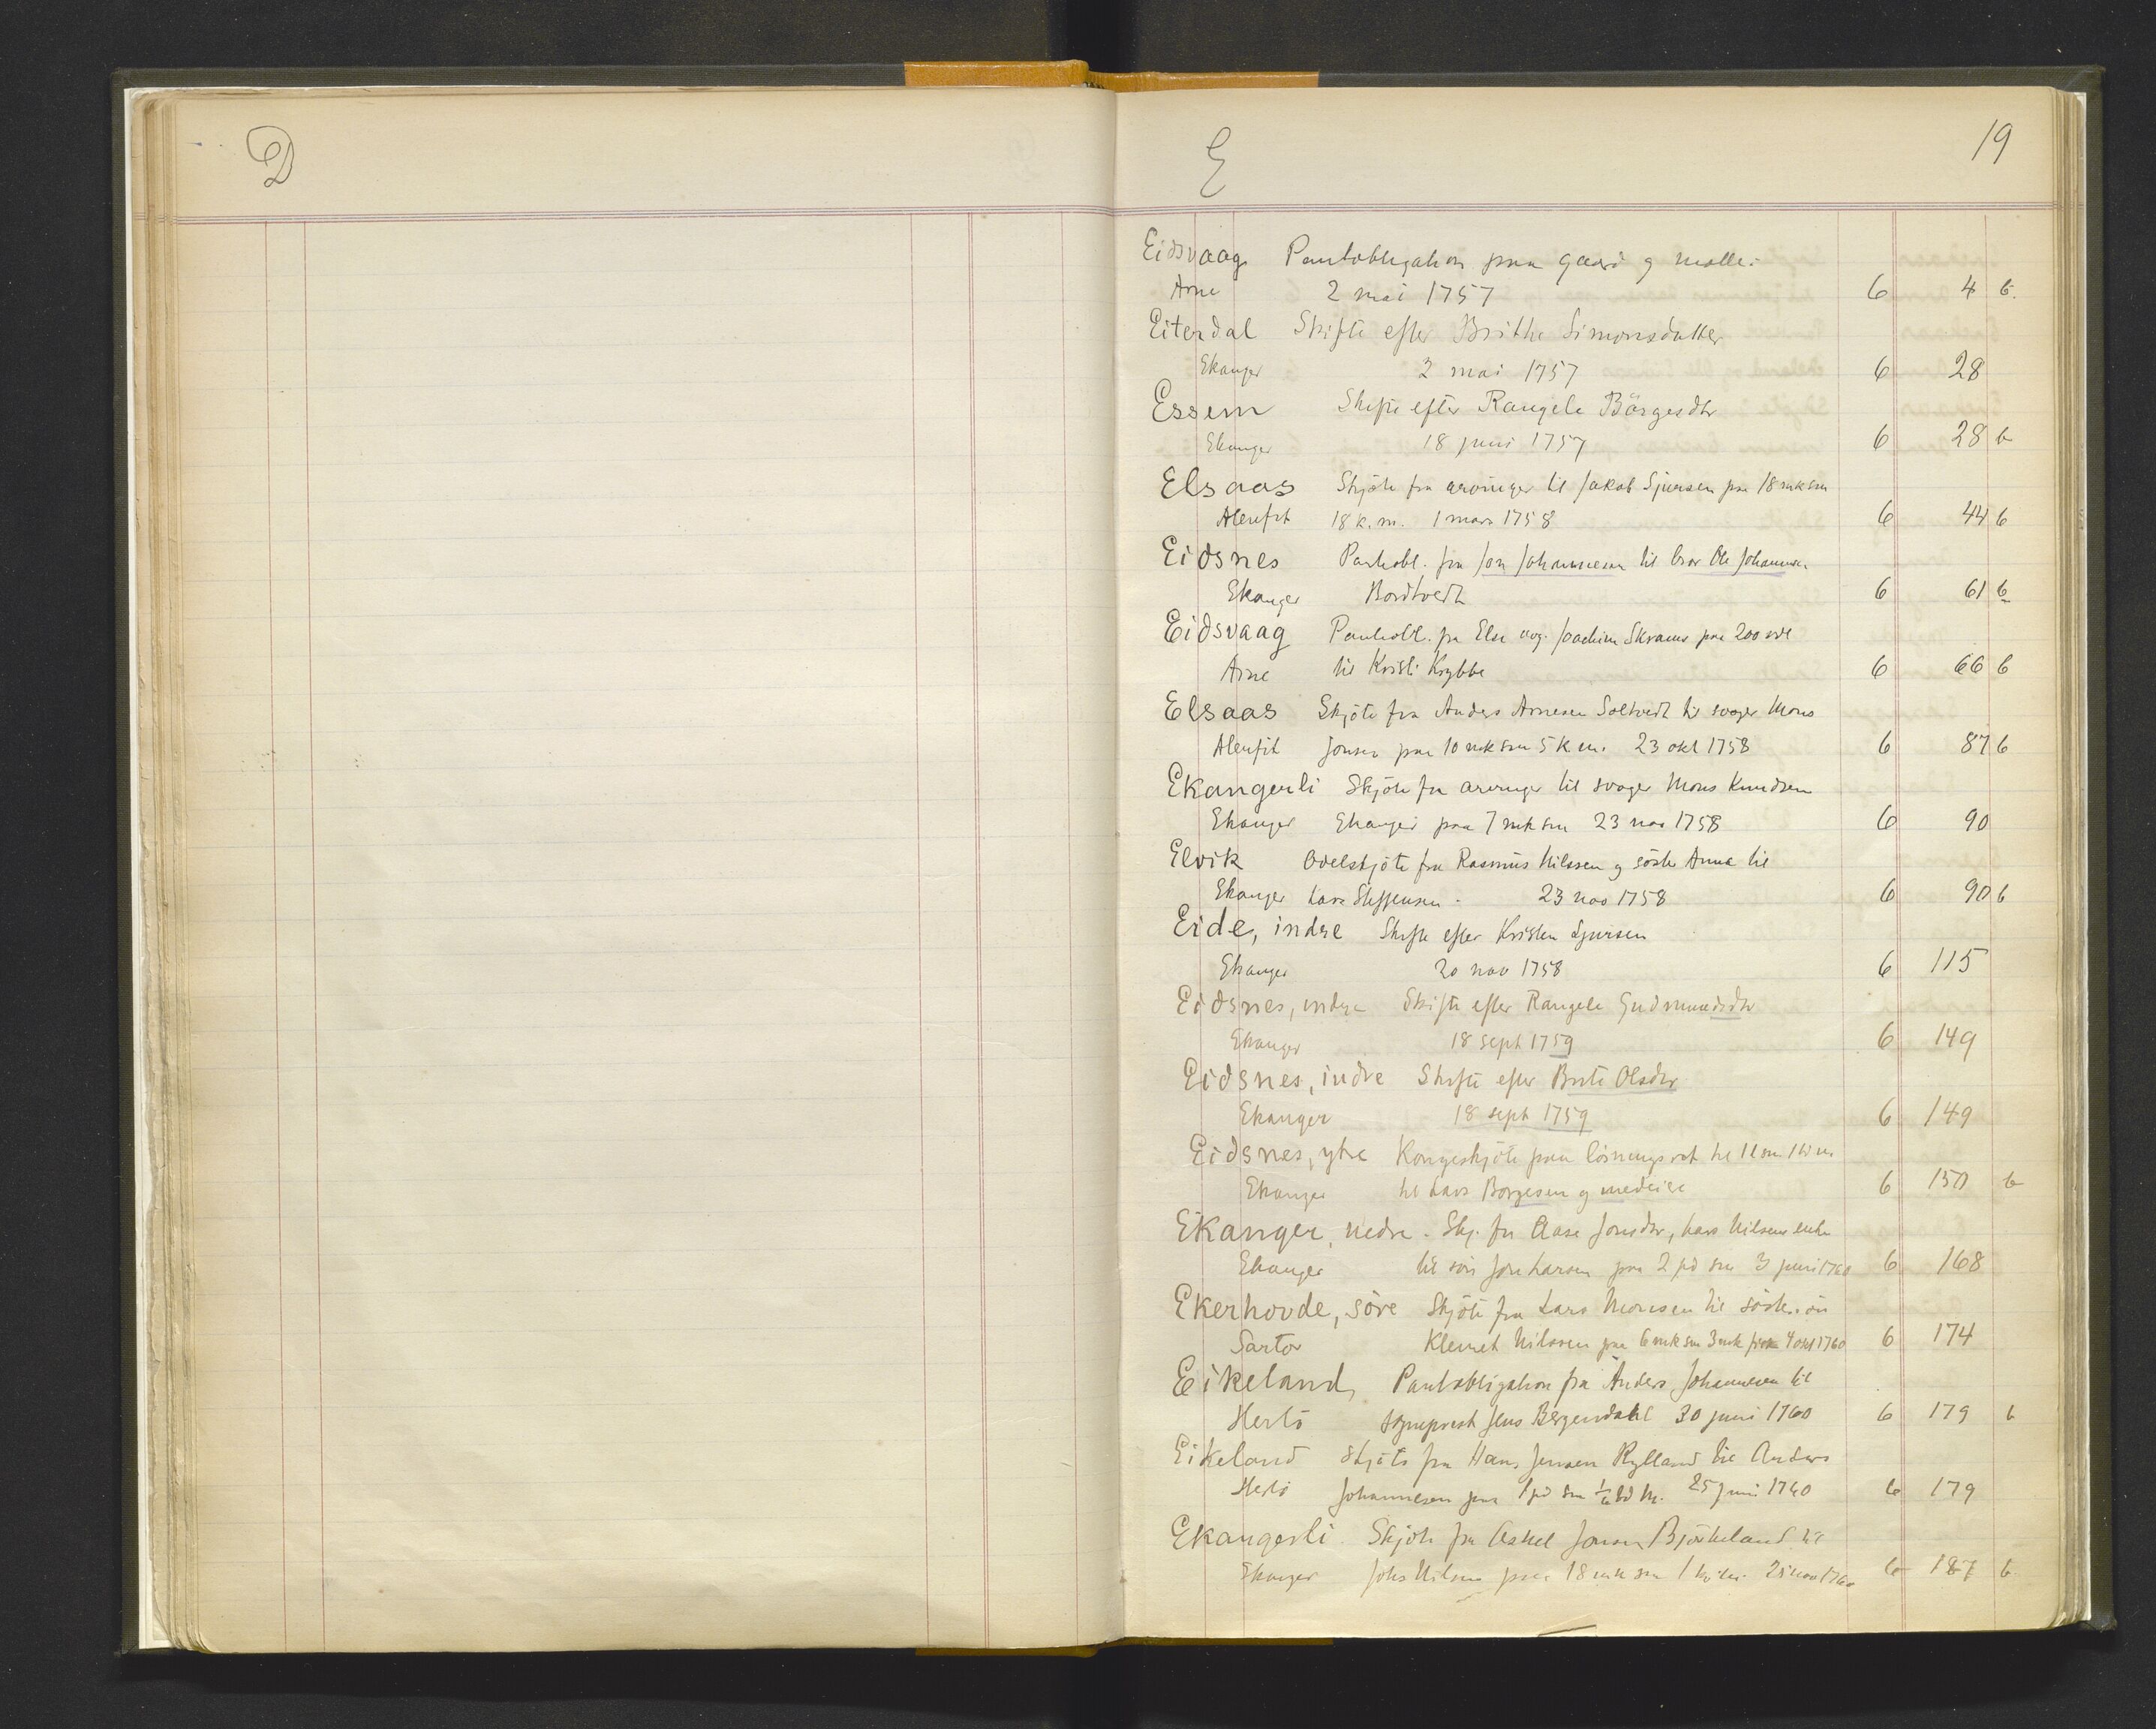 D
E
19
Eidsvaag Pantobligation paa gaard og mølle.
Arne 2 mai 1757 6 4 b.
Eiterdal Skifte efter Brithe Simonsdatter
Ekanger 2 mai 1757 6 28
Essem Skifte efter Rangela Børgesdtr
Ekanger 18 juni 1757 6 28 b
Elsaas Skjøte fra arvinger til Jakob Sjursen paa 18 mk sm
Alenfit 18 k. m. 1 mars 1758 6 44 b
Eidsnes Pantobl. fra Jon Johannesen til bror Ole Johannesen
Ekanger Bordtvedt 6 61 b
Eidsvaag Pantobl. fra Else avg. Joachim Skrams paa 200 rdl
Arne til Kristi Krybbe 6 66 b
Elsaas Skjøte fra Anders Arnesen Soltvedt til svoger Mons
Alenfit Jonsen paa 10 mk sm 5 k m. 23 okt 1758 6 87 b
Ekangerli Skjøte fra arvinger til svoger Mons Knudsen
Ekanger Ekanger paa 7 mk sm 23 nov 1758 6 90
Elvik Odelskjøte fra Rasmus Nilssen og søster Anna til
Ekanger Lars Steffensen. 23 nov 1758 6 90 b
Eide, indre Skifte efter Kristen Sjursen
Ekanger 20 nov 1758 6 115
Eidsnes, indre Skifte efter Rangela Gudmundsdtr
Ekanger 18 sept 1759 6 149
Eidsnes, indre Skifte efter Brite Olsdtr
Ekanger 18 sept 1759 6 149
Eidsnes, ytre Kongeskjøte paa løsningsret til 1 l sm
Ekanger til Lars Borgesen og medeier 6 150 b
Eikanger, nedre. Skj. fra Aase Jonsdtr, Lars Nilsens enke
Ekanger til søn Jon Larsen paa 2 pd sm 3 juni 1760 6 168
Ekerhovde, søre Skjøte fra Lars Monsen til søstersøn
Sartor Klemet Nilssen paa 6 mk sm 3 mk fisk 4 okt 1760 6 174
Eikeland, Pantobligation fra Anders Johannesen til
Herlø sogneprest Jens Bergendahl 30 juni 1760 6 179 b
Eikeland Skjøte fra Hans Jensen Rylland til Anders
Herlø Johannesen paa 1 pd sm 25 juni 1760 6 179
Ekangerli Skjøte fra Askel Jonsen Bjørkeland til
Ekanger Johs Nilsen paa 18 mk sm 1760 6 187 b